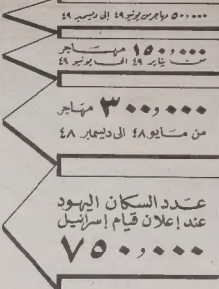 ٥٠٠٠٠ مهاجر من يونيو ٤٩ إلى ديسمبر ٤٩
١٥٠٠٠٠ مهاجر
من يناير ٤٩ إلى يونيو ٤٩
٣٠٠,٠٠٠ مهاجر
من مايو ٤٨ الى ديسمبر ٤٨
عدد السكان اليهود
عند إعلان قيام إسرائيل
٧٥٠,٠٠٠